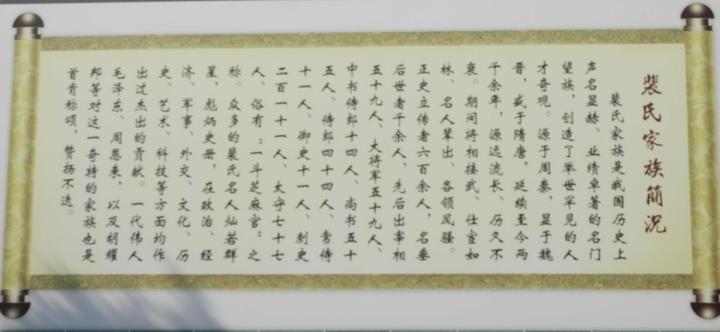 裴氏家族简况
裴氏家族是我国历史上
声名显赫、业绩卓著的名门
望族，创造了举世罕见的人
才奇观。源于周秦，显于魏
晋，盛于隋唐，延续至今两
千余年，源远流长、历久不
衰。期间将相接武、仕宦如
林、名人辈出、各领风骚。
正史立传者六百余人，名垂
后世者千余人，先后出宰相
五十九人、大将军五十九人、
中书侍郎十四人、尚书五十
五人、侍郎四十四人、常侍
十一人、御史十一人、刺史
二百一十一人、太守七十七
人、俗有“一斗芝麻官”之
称。众多的裴氏名人灿若群
星，彪炳史册，在政治、经
济、军事、外交、文化、历
史、艺术、科技等方面均作
出过杰出的贡献。一代伟人
毛泽东、周恩来，以及胡耀
邦等对这一奇特的家族也是
首肯称颂，赞扬不迭。